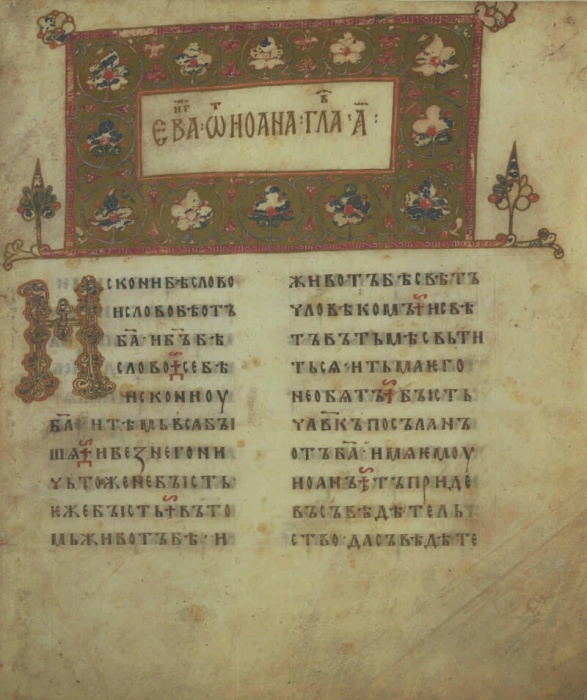 ЕВА҃·Ѿ ИОАНА·ГЛА·А҃·
ИСКОНИБѢСЛОВО
ИСЛОВОБѢОТЪ
БА҃·ИБ҃ЪБѢ
СЛОВО·СЕБѢ
ИСКОНИОУ
БА҃·ИТѢМЬВСАБЫ
ШѦ·ИБЕЗНЕГОНИ
ЧЬТОЖЕНЕБЫСТЬ·
ЕЖЕБЫСТЬ·ВЪТО
МЬЖИВОТЪБѢ·И
ЖИВОТЪБѢСВѢТЪ
ЧЛОВѢКОМЪ·ИСВѢ
ТЪВЪТЬМѢСВЬТИ
ТЬСѦ·ИТЬМАЕГО
НЕОБѦТЪ·БЫСТЬ
ЧЛ҃ВКЪПОСЪЛАНЪ
ОТЪБА҃·ИМѦЕМОУ
ИОАНЪ·ТЪПРИДЕ
ВЪСЪВѢДѢТЕЛЬ
СТВО·ДАСЪВѢДѢТЕ